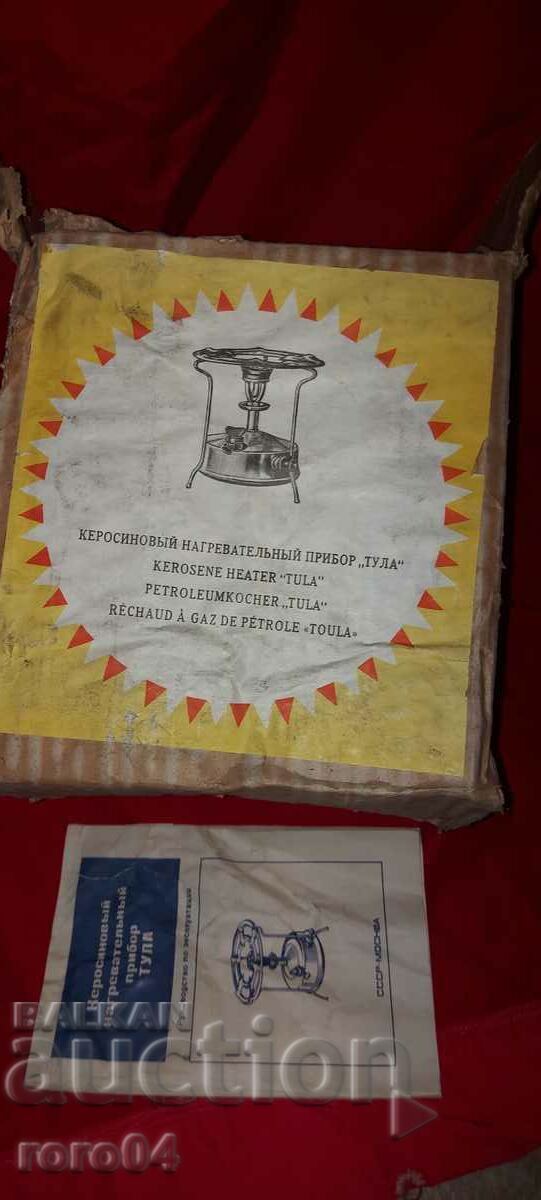 КЕРОСИНОВЫЙ НАГРЕВАТЕЛЬНЫЙ ПРИБОР „ТУЛА“
KEROSENE HEATER "TULA"
PETROLEUMKOCHER „TULA"
RÉCHAUD À GAZ DE PÉTROLE «TOULA»
Керосиновый
нагревательный
прибор
ТУЛА
Руководство по эксплуатации
СССР-МОСКВА
BALKAN
auction
roro04